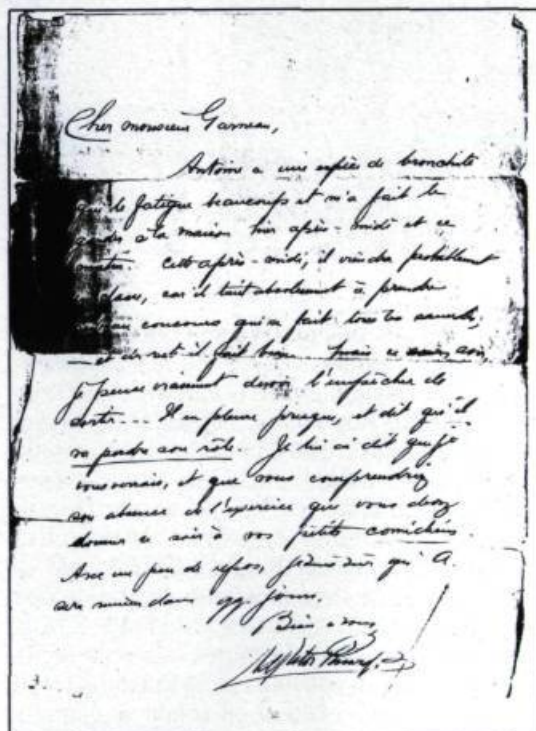 Cher monsieur Garneau,
Antoine a une espèce de bronchite
qui le fatigue beaucoup et m'a fait le
garder à la maison hier après-midi et ce
matin. Cette après-midi, il viendra probablement
en classe, car il tient absolument à prendre
concours qui se fait tous les
et du reste il fait beau. Mais ce soir,
je pense vraiment devoir l'empêcher de
sortir... Il en pleure presque, et dit qu'il
va perdre son rôle. Je lui ai dit que je
vous verrais, et que vous comprendriez
son absence de l'exercice que vous devez
donner ce soir à vos petits comédiens.
Avec un peu de repos, je suis sûr qu'A.
sera mieux dans qq. jours.
Bien à vous,